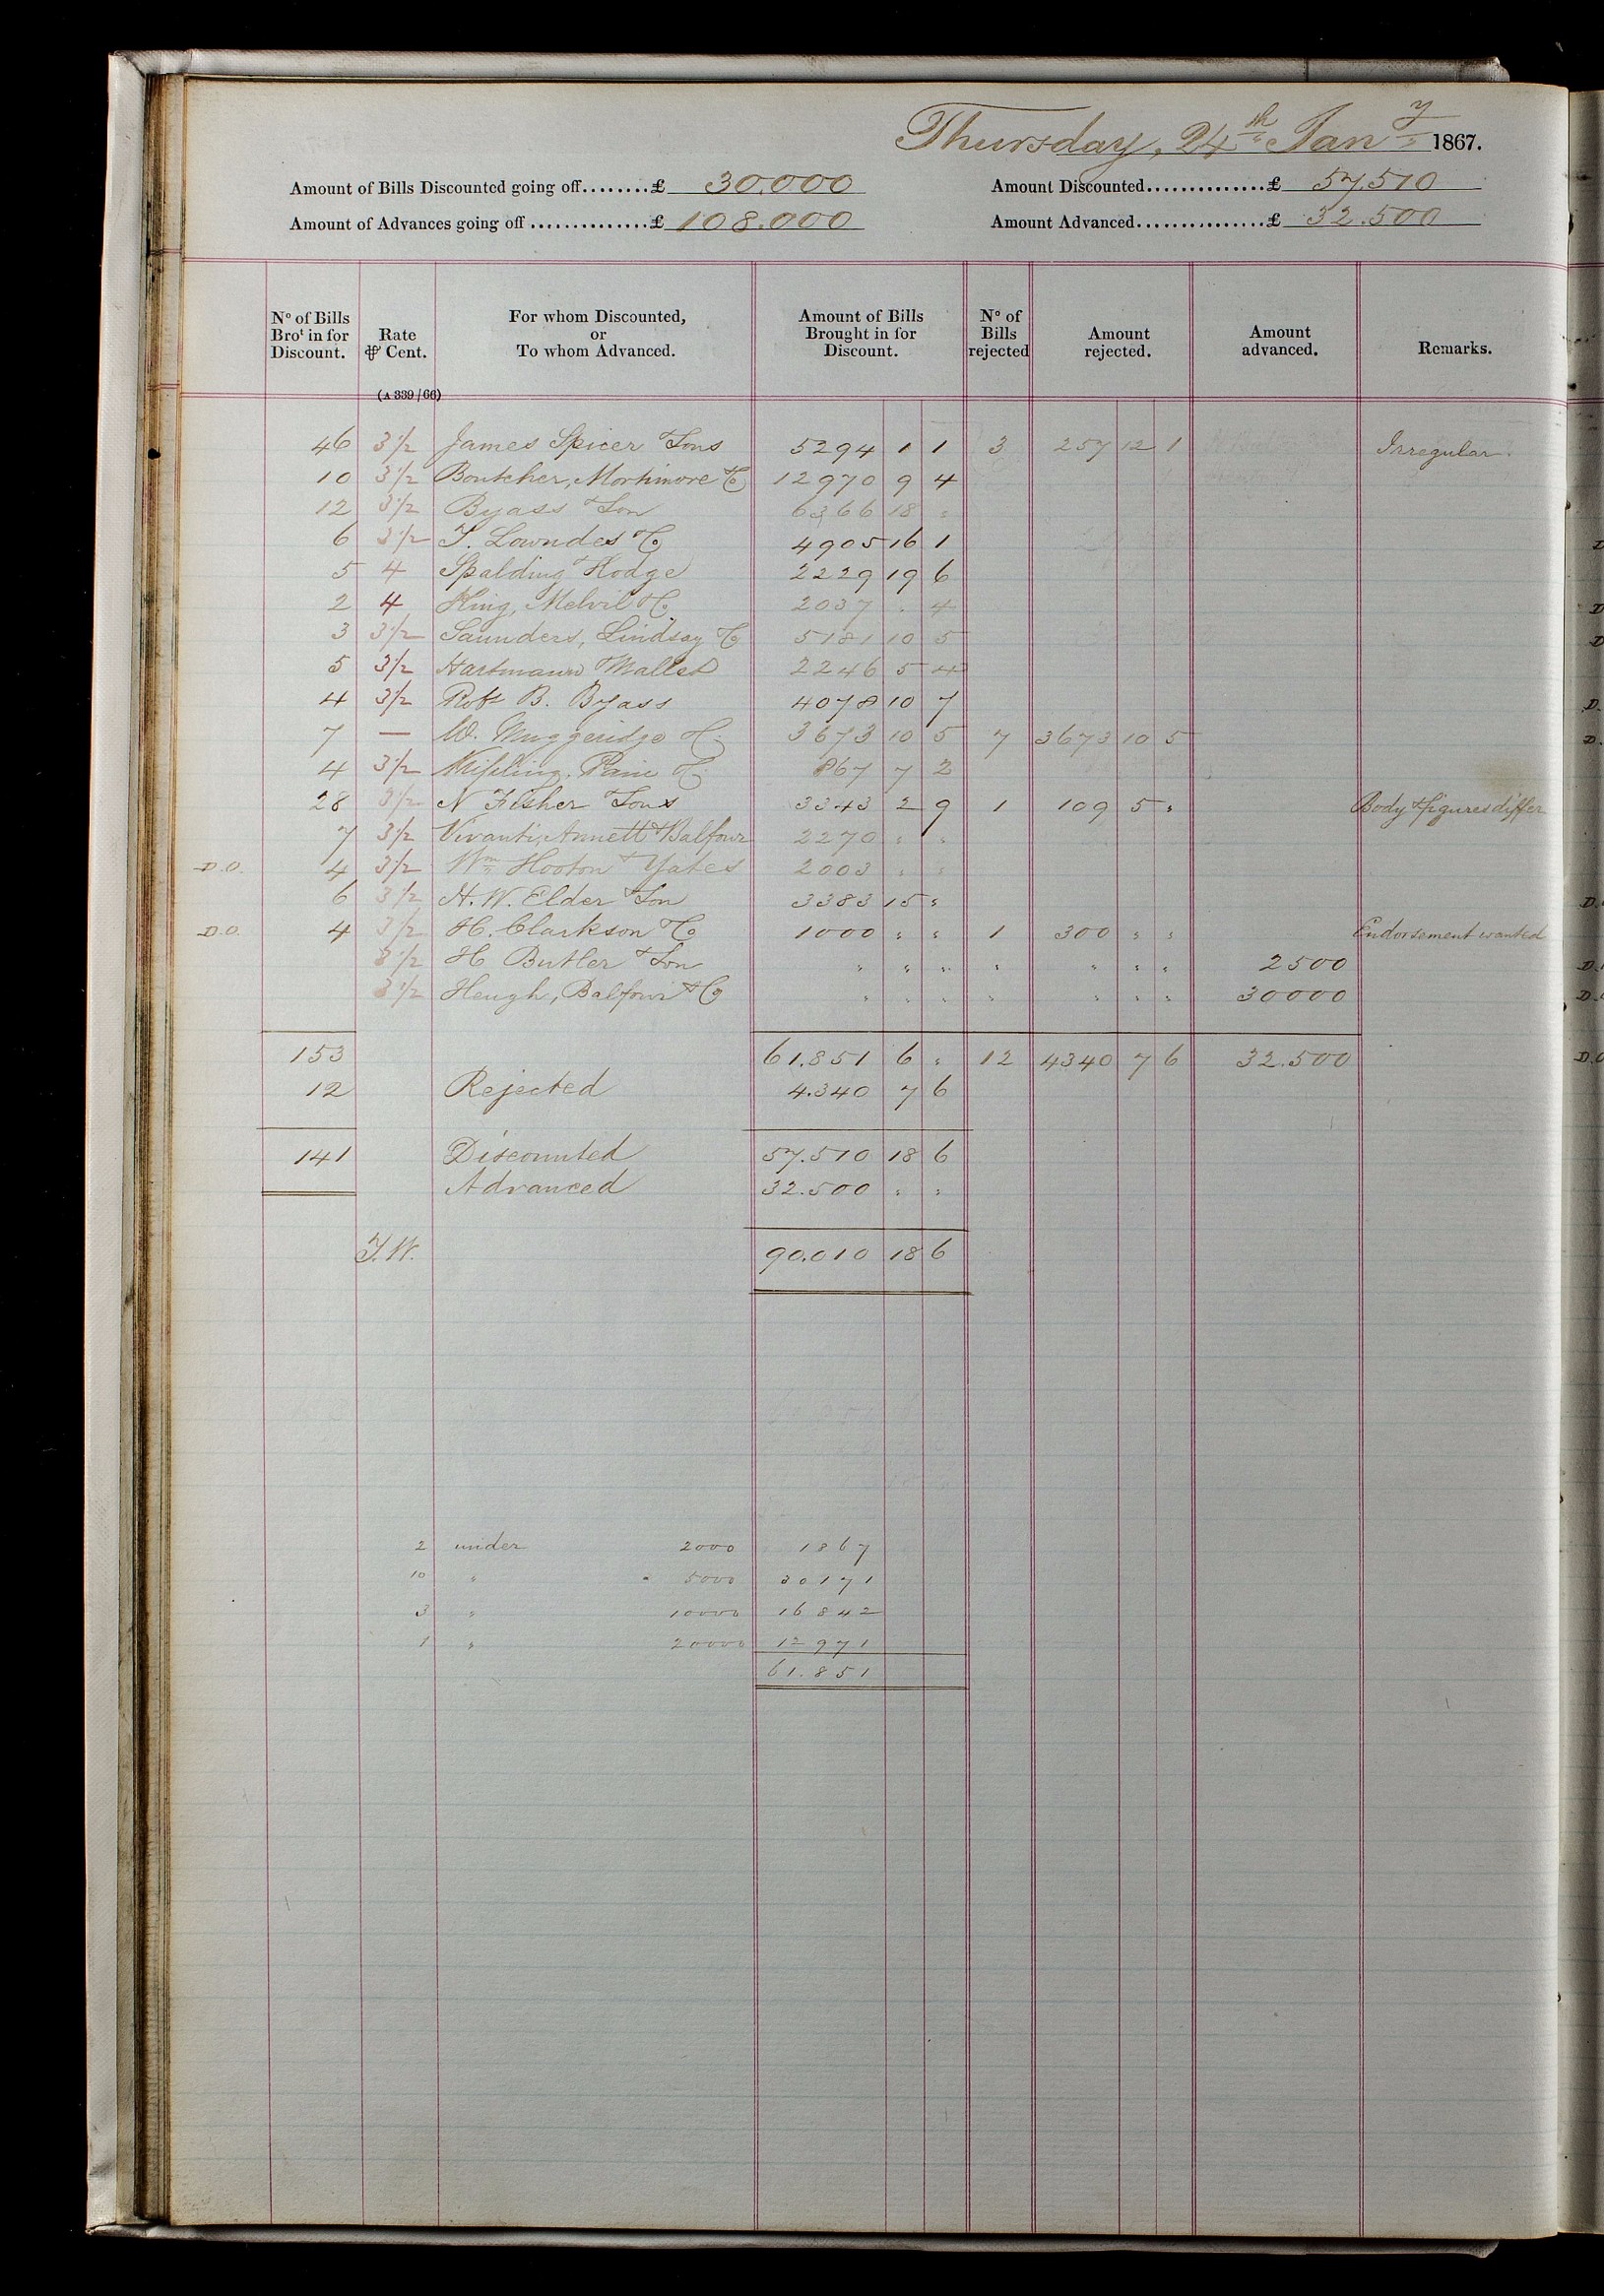 Thursday, 24th Jany 1867.
Amount of Bills Discounted going off........£ 30.000 Amount Discounted..............£ 57.510
Amount of Advances going off ..............£ 108.000 Amount Advanced...............£ 32.500
No of Bills Brot in for Discount. Rate ⅌ Cent. For whom Discounted, or To whom Advanced. Amount of Bills Brought in for Discount. No of Bills rejected Amount rejected. Amount advanced. Remarks.
(A 339/66)
46 3½ James Spicer & Sons 5294 1 1 3 257 12 1 Irregular.
10 3½ Boutcher, Mortimore & Co 12970 9 4
12 3½ Byass & Son 6366 18 "
6 3½ T. Lowndes & Co 4905 16 1
5 4 Spalding & Hodge 2229 19 6
2 4 King, Melvil & Co 2037 " 4
3 3½ Saunders, Lindsay & Co 5181 10 5
5 3½ Hartmann & Mallet 2246 5 4
4 3½ Robt B. Byass 4078 10 7
7 — W. Muggeridge & Co 3673 10 5 7 3673 10 5
4 3½ Kipling, Pain & Co 867 7 2
28 3½ N Fisher & Sons 3343 2 9 1 109 5 " Body & figures differ
7 3½ Vivanti, Annett & Balfour 2270 " "
D.O. 4 3½ Wm Hooton & Yates 2003 " "
6 3½ H. W. Elder & Son 3383 15 "
D.O. 4 3½ H. Clarkson & Co 1000 " " 1 300 " " Endorsement wanted
3½ H Butler & Son " " " " " " " 2500
3½ Heugh, Balfour & Co " " " " " " " 30000
153 61.851 6 " 12 4340 7 6 32.500
12 Rejected 4.340 7 6
141 Discounted 57.510 18 6
Advanced 32.500 " "
T.W. 90.010 18 6
2 under 2000 1867
10 " " 5000 30171
3 " 10000 16842
1 " 20000 12971
61.851